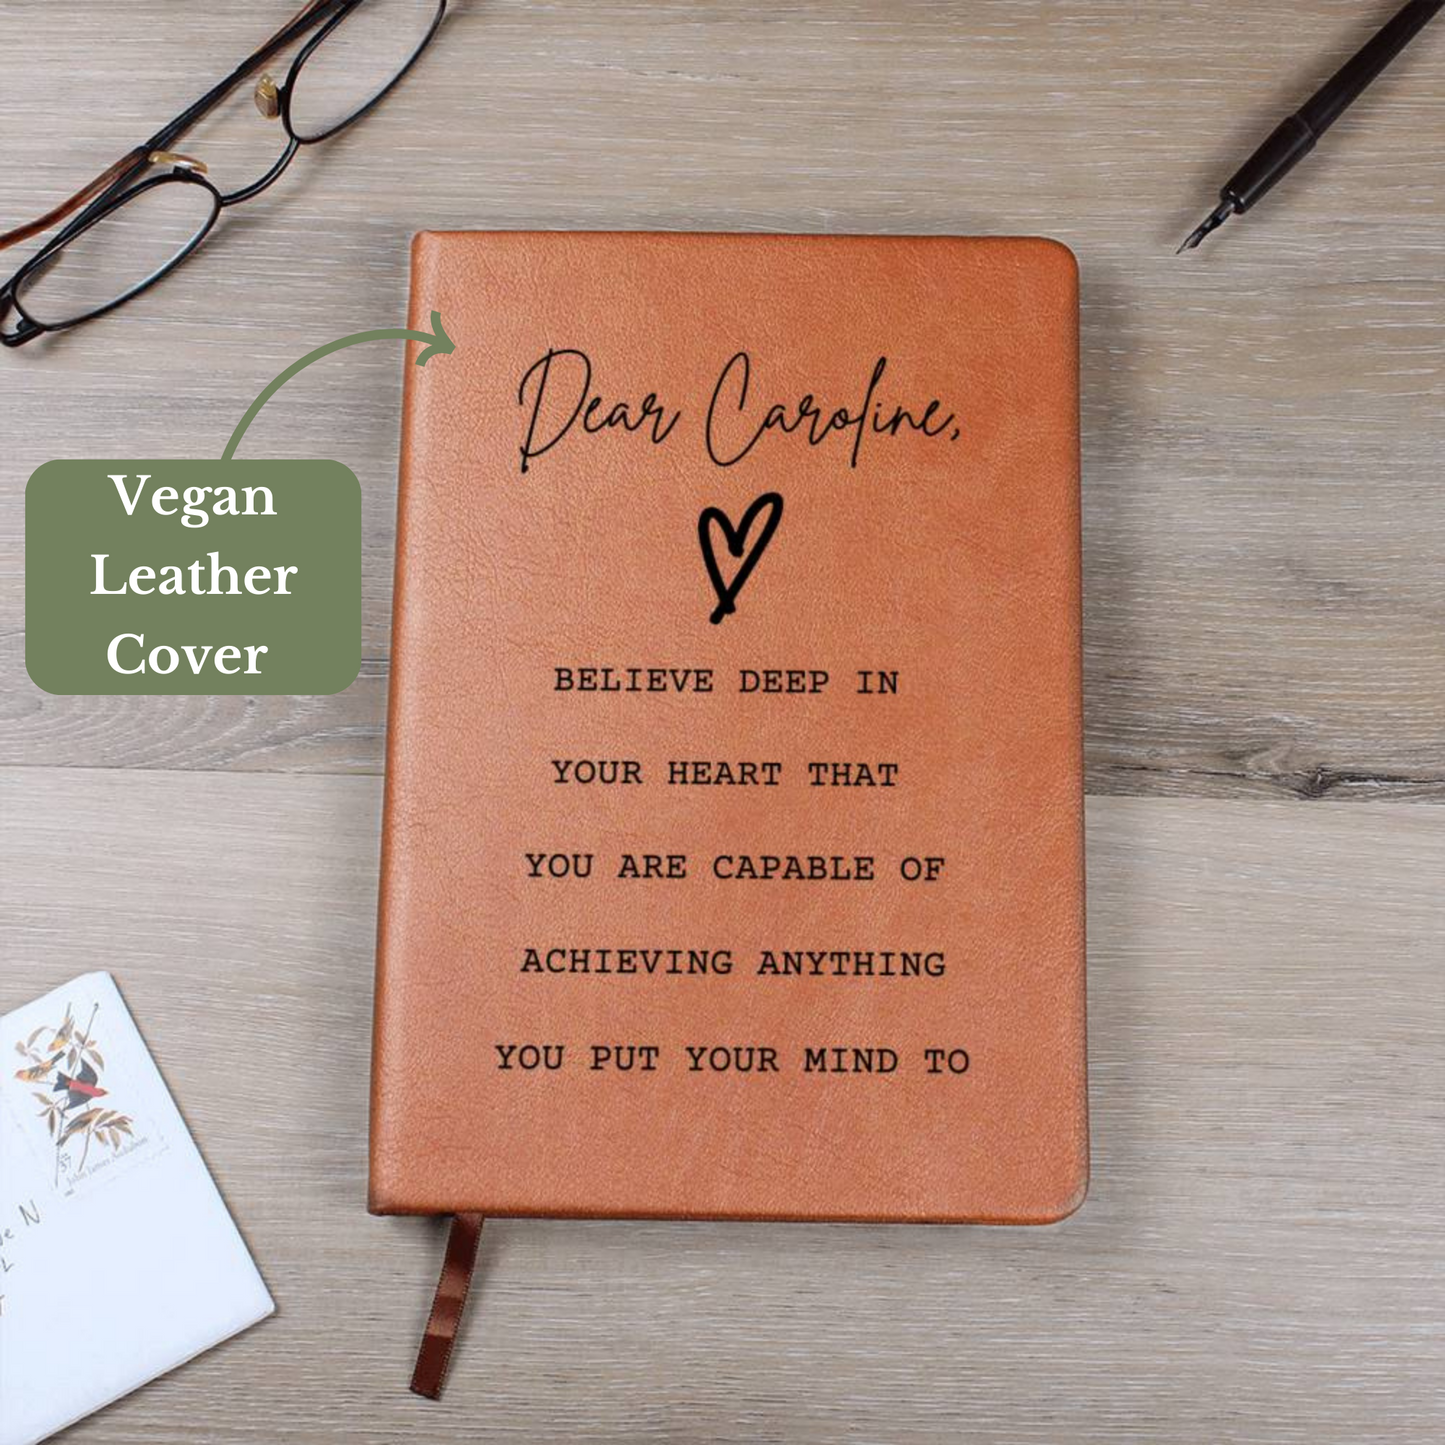 Dear Caroline,
Vegan
Leather
Cover
BELIEVE DEEP IN
YOUR HEART THAT
YOU ARE CAPABLE OF
ACHIEVING ANYTHING
YOU PUT YOUR MIND TO
37
John James Audubon
N